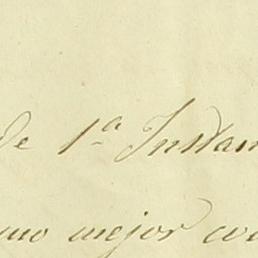 de 1ª Instan
mo mejor con